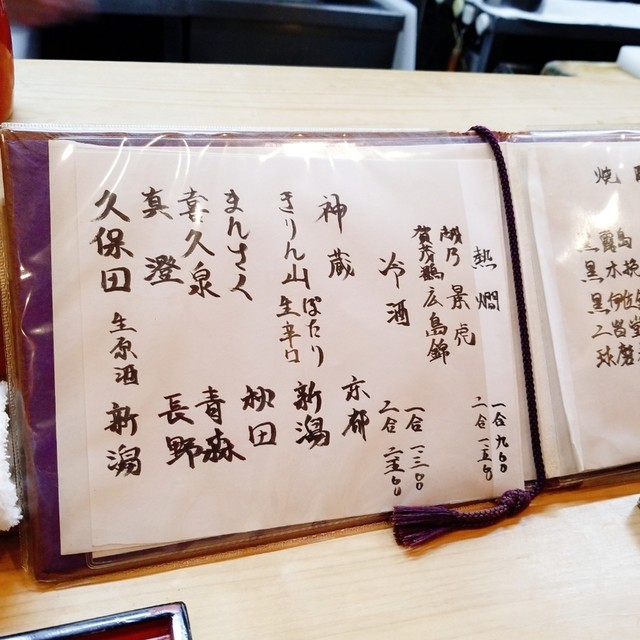 熱燗 一合 九〇〇
二合 一五〇〇
越乃景虎
賀茂鶴 広島錦
冷酒 一合 一三〇〇
二合 二五〇〇
神蔵 京都
きりん山 ぽたり 生辛口 新潟
まんさく 秋田
喜久泉 青森
真澄 長野
久保田 生原酒 新潟
焼
霧島
黒木挽
黒伊佐
球磨